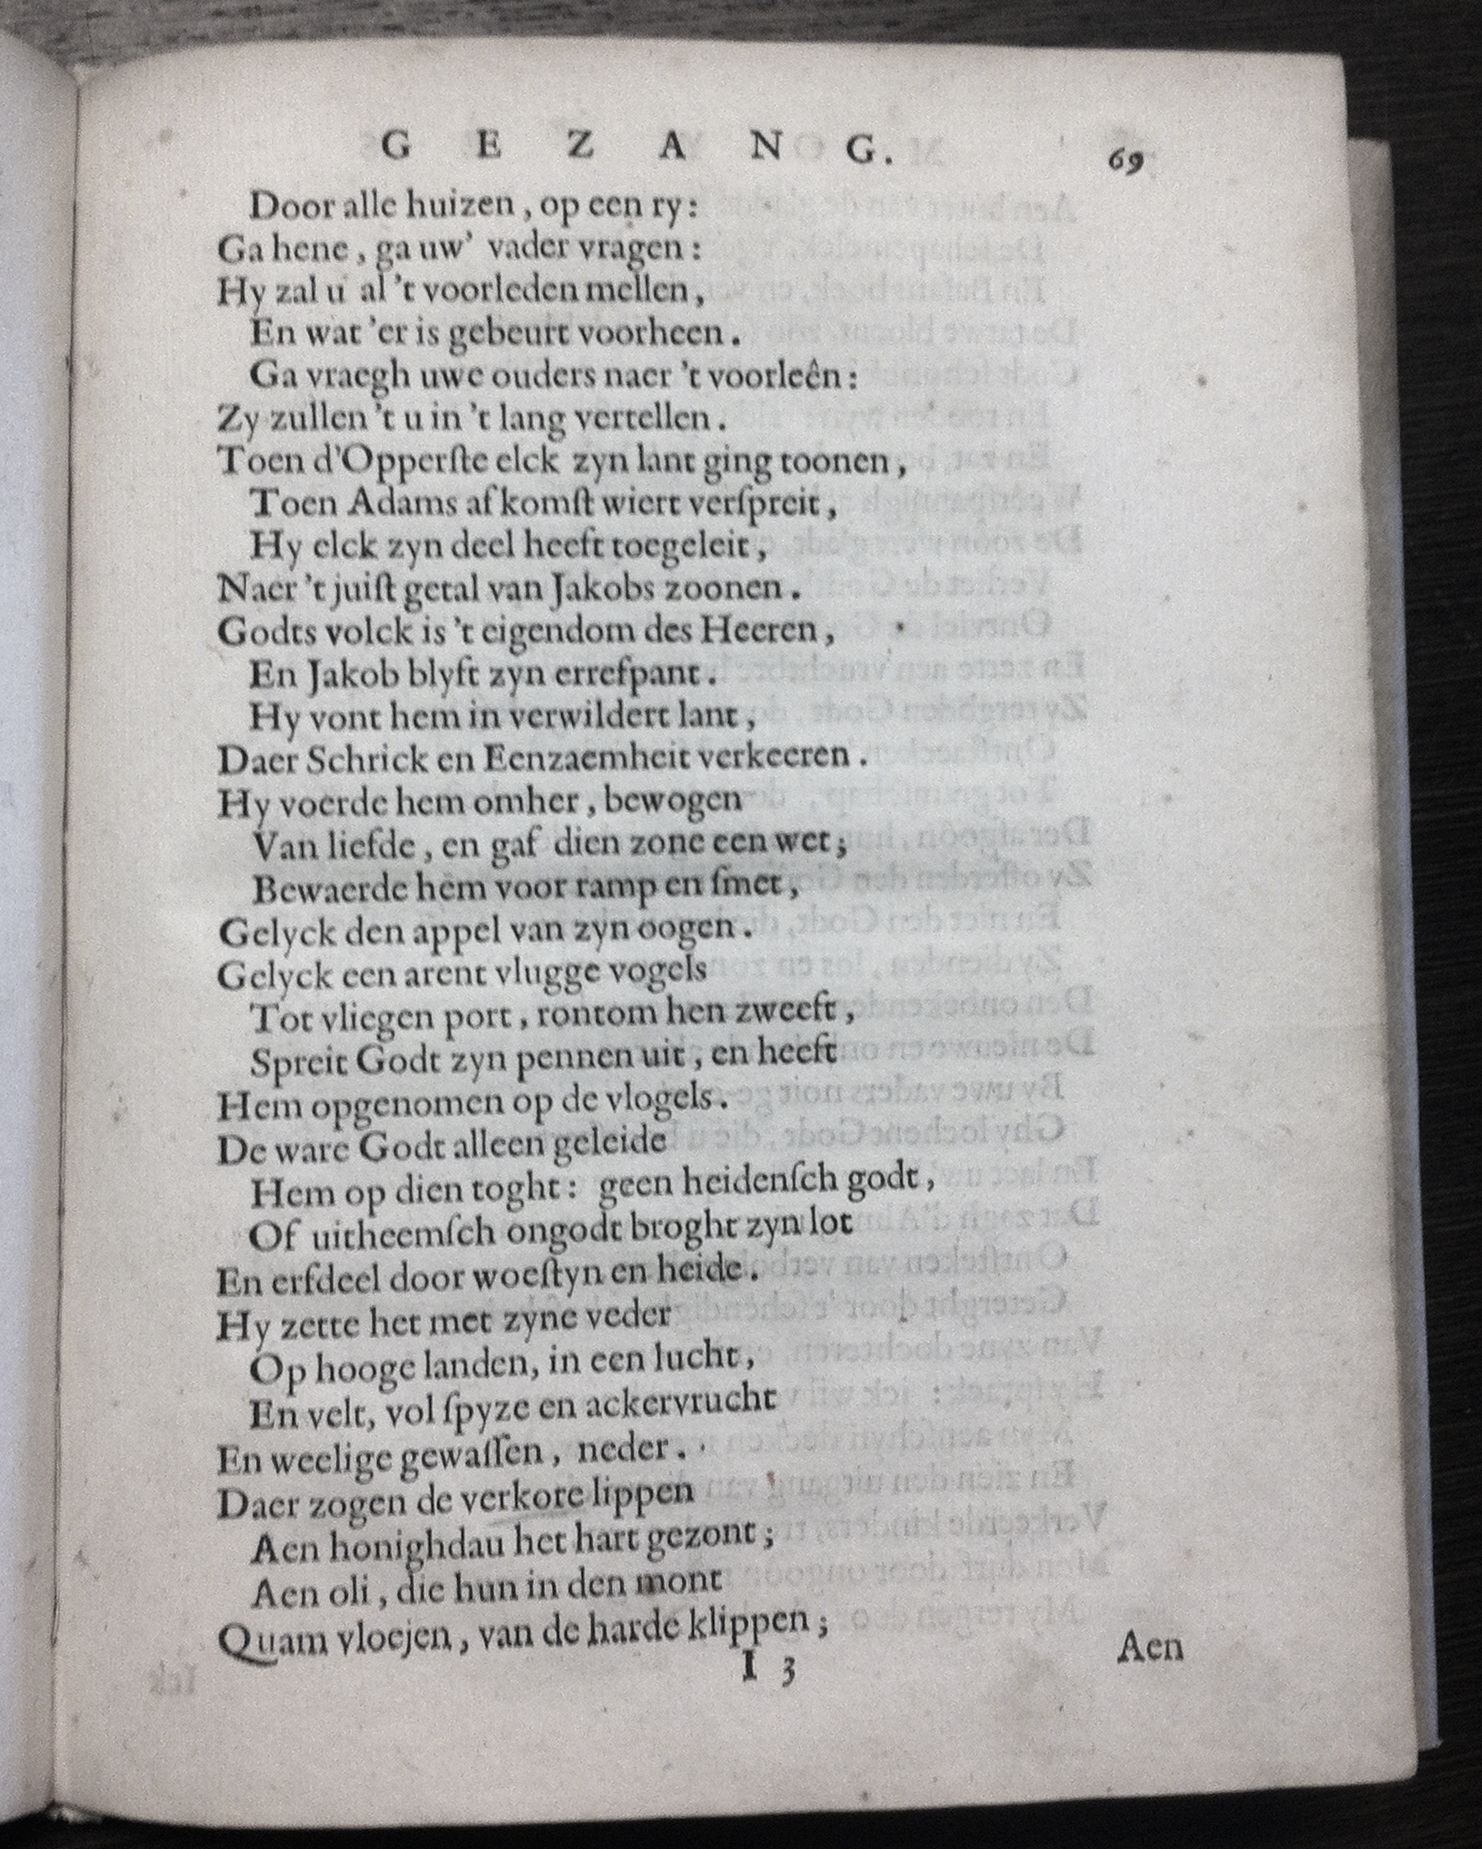 GEZANG. 69
Door alle huizen, op een ry:
Ga hene, ga uw' vader vragen:
Hy zal u al 't voorleden mellen,
En wat 'er is gebeurt voorheen.
Ga vraegh uwe ouders naer 't voorleên:
Zy zullen 't u in 't lang vertellen.
Toen d'Opperſte elck zyn lant ging toonen,
Toen Adams afkomſt wiert verſpreit,
Hy elck zyn deel heeft toegeleit,
Naer 't juiſt getal van Jakobs zoonen.
Godts volck is 't eigendom des Heeren,
En Jakob blyft zyn errefpant.
Hy vont hem in verwildert lant,
Daer Schrick en Eenzaemheit verkeeren.
Hy voerde hem omher, bewogen
Van liefde, en gaf dien zone een wet;
Bewaerde hem voor ramp en ſmet,
Gelyck den appel van zyn oogen.
Gelyck een arent vlugge vogels
Tot vliegen port, rontom hen zweeft,
Spreit Godt zyn pennen uit, en heeft
Hem opgenomen op de vlogels.
De ware Godt alleen geleide
Hem op dien toght: geen heidenſch godt,
Of uitheemſch ongodt broght zyn lot
En erfdeel door woeſtyn en heide.
Hy zette het met zyne veder
Op hooge landen, in een lucht,
En velt, vol ſpyze en ackervrucht
En weelige gewaſſen, neder.
Daer zogen de verkore lippen
Aen honighdau het hart gezont;
Aen oli, die hun in den mont
Quam vloejen, van de harde klippen;
I 3 Aen